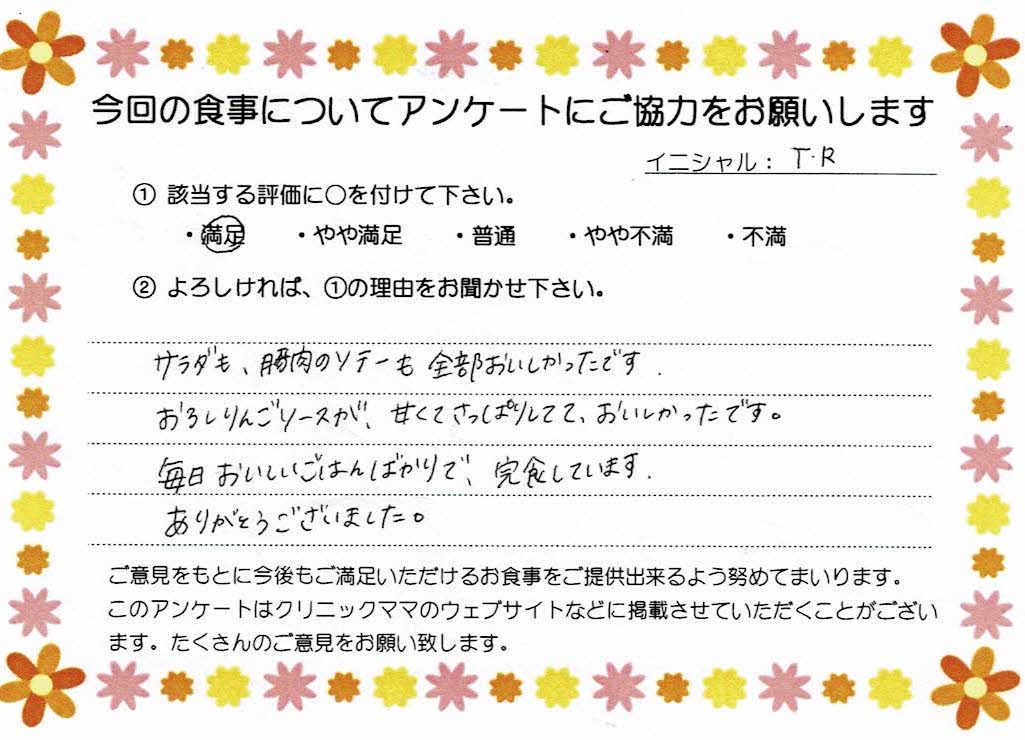 今回の食事についてアンケートにご協力をお願いします
イニシャル： T.R
① 該当する評価に○を付けて下さい。
・満足 ・やや満足 ・普通 ・やや不満 ・不満
② よろしければ、①の理由をお聞かせ下さい。
サラダも、豚肉のソテーも全部おいしかったです.
おろしりんごソースが、甘くてさっぱりしてて、おいしかったです。
毎日おいしいごはんばかりで、完食しています.
ありがとうございました。
ご意見をもとに今後もご満足いただけるお食事をご提供出来るよう努めてまいります。
このアンケートはクリニックママのウェブサイトなどに掲載させていただくことがござい
ます。たくさんのご意見をお願い致します。